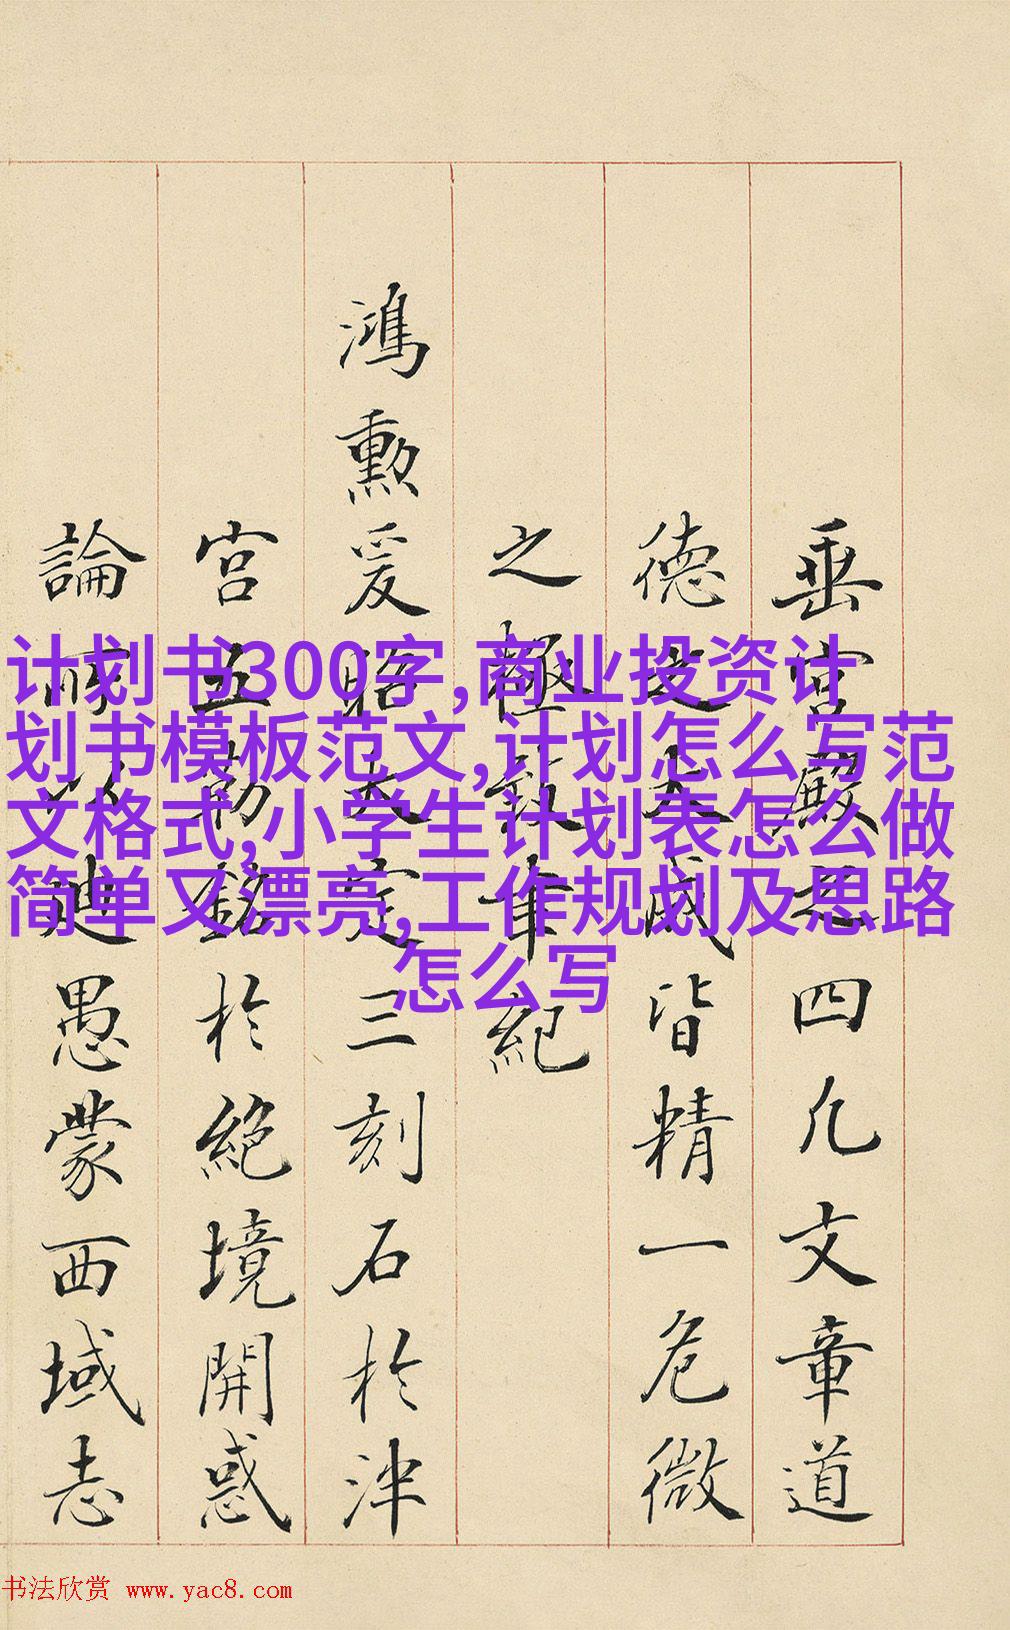 垂宮殿四几文章道
德之大咸皆精一危微
之極聿紀
鴻勲爰昭大定三刻石於津
宫五勒銘於絶境開惑
論所以迪愚蒙西域志
计划书300字,商业投资计
划书模板范文,计划怎么写范
文格式,小学生计划表怎么做
简单又漂亮,工作规划及思路
怎么写
书法欣赏 www.yac8.com